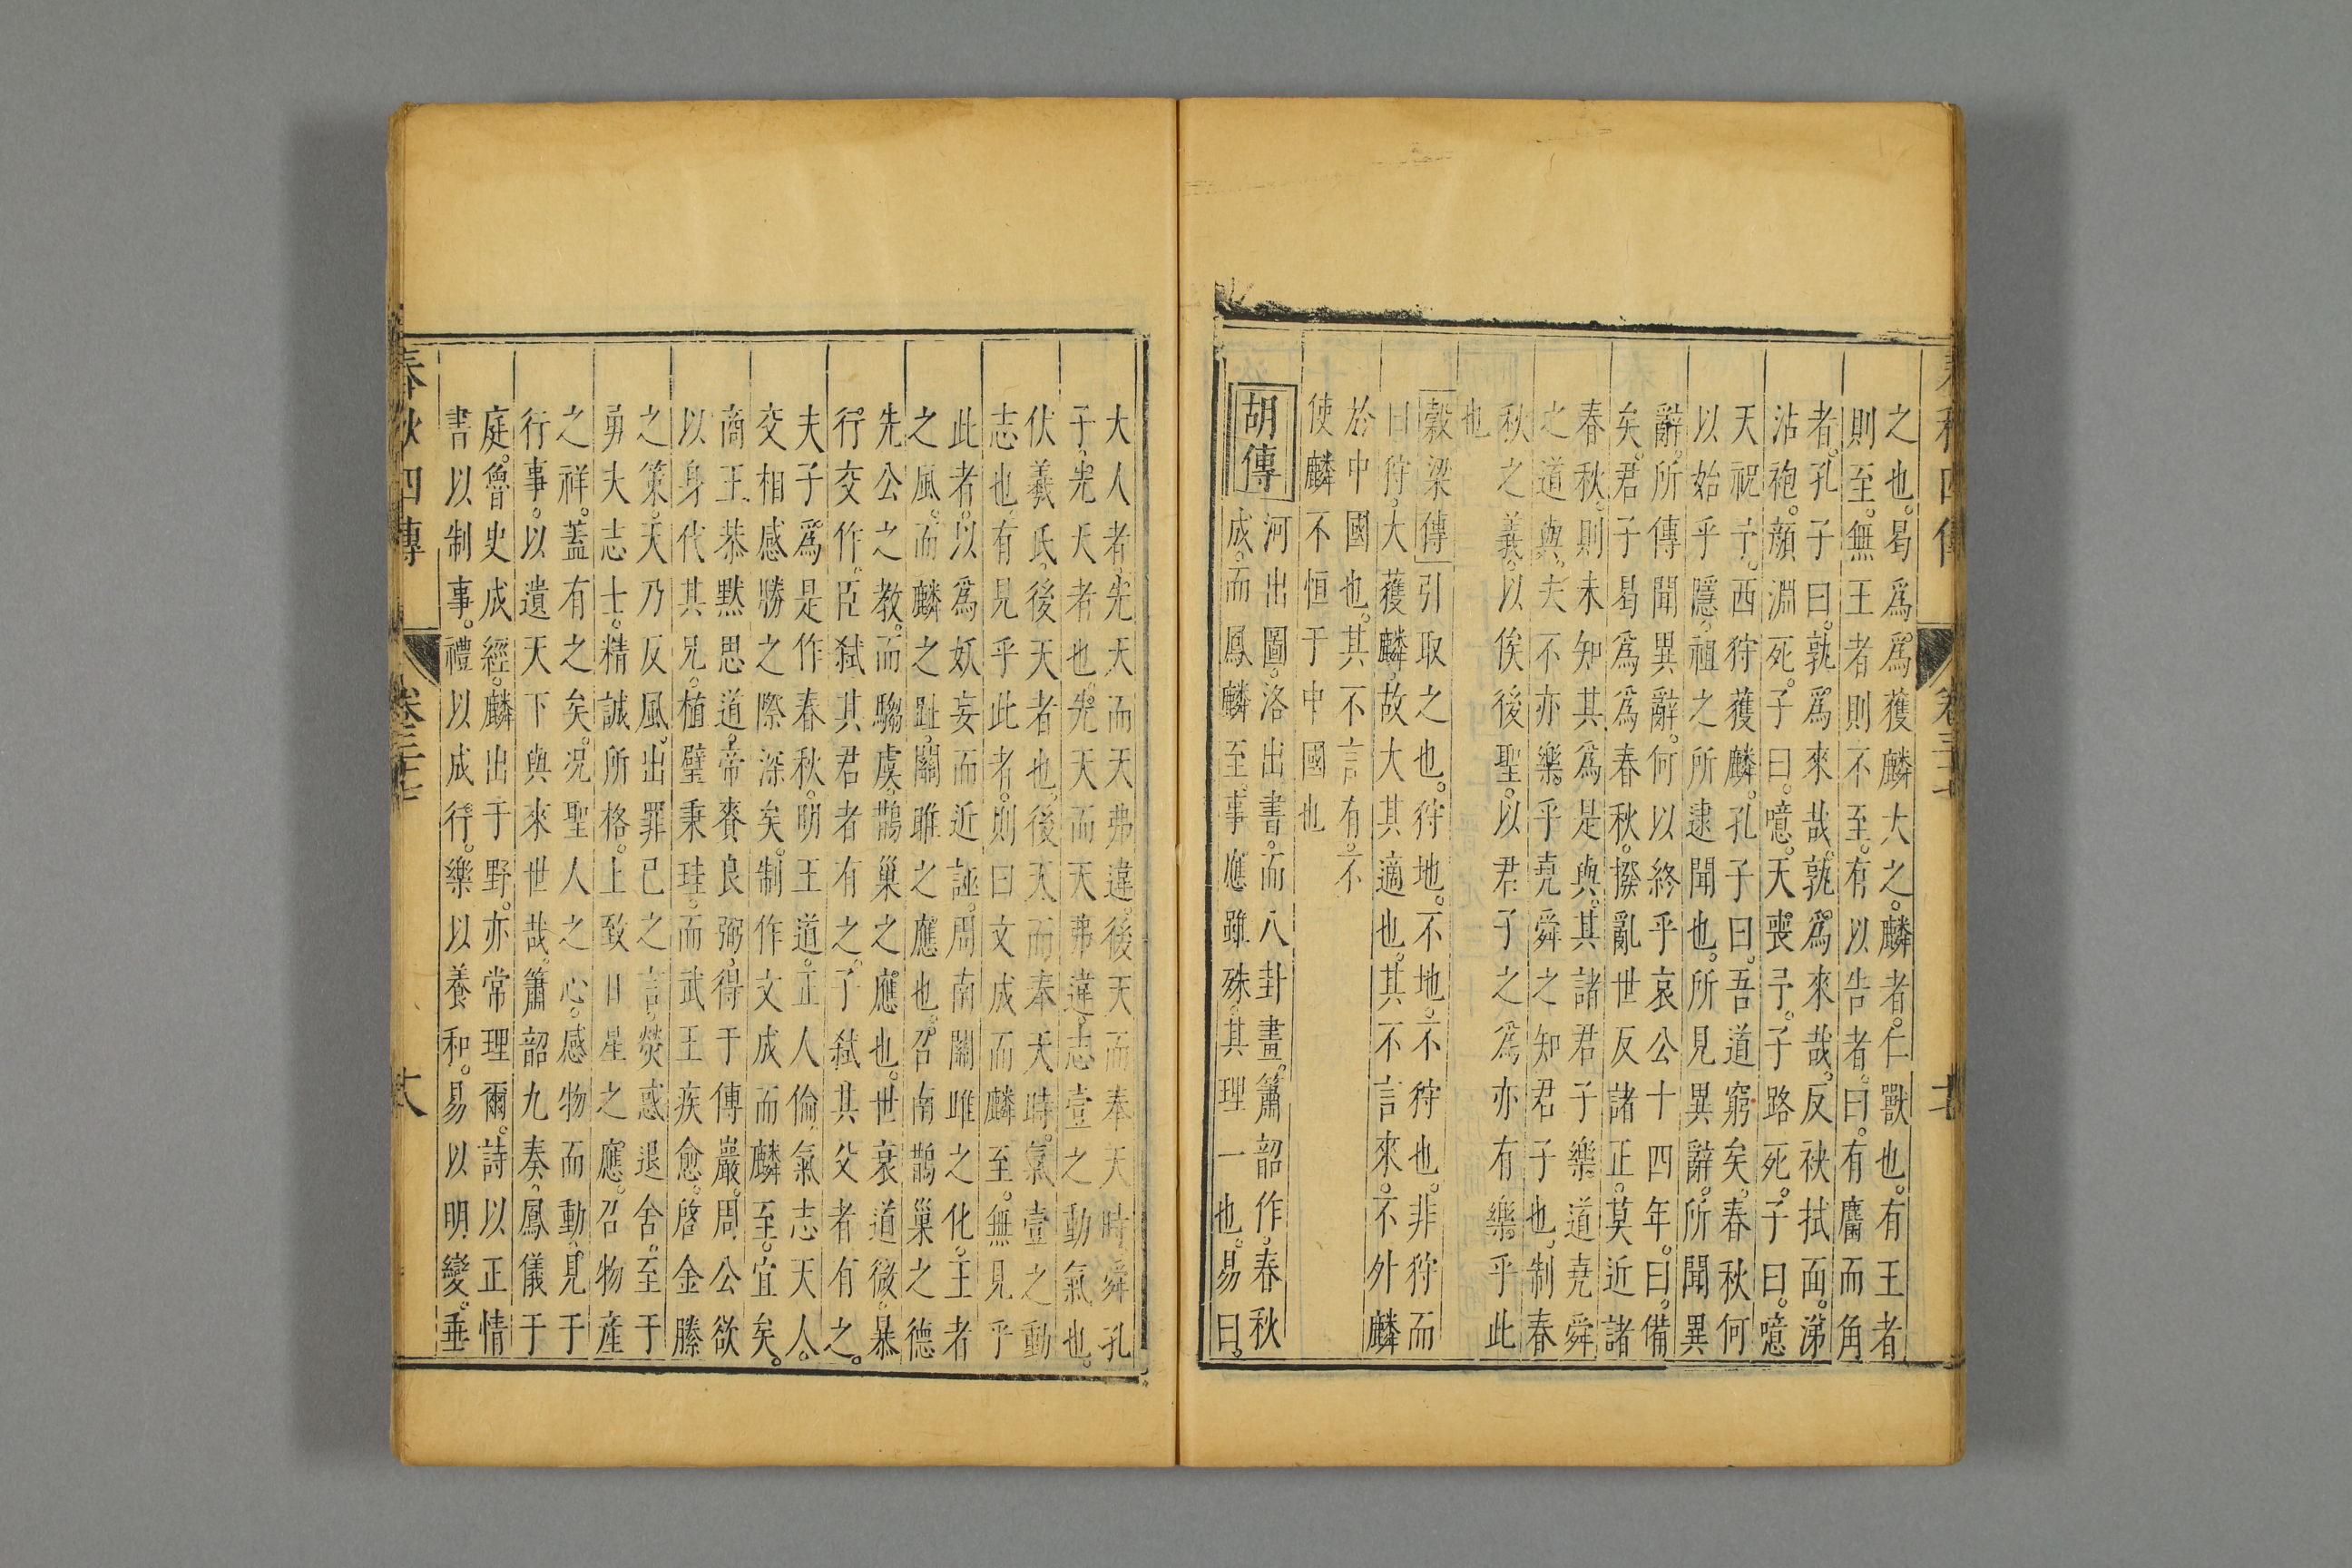 之也。曷爲爲獲麟大之。麟者。仁獸也。有王者
則至。無王者則不至。有以告者。曰。有麕而角
者。孔子曰。孰爲來哉。孰爲來哉。反袂拭面。涕
沾袍。顏淵死。子曰。噫。天喪予。子路死。子曰。噫
天祝予。西狩獲麟。孔子曰。吾道窮矣。春秋何
以始乎隱。祖之所逮聞也。所見異辭。所聞異
辭。所傳聞異辭。何以終乎哀公十四年。曰。備
矣。君子曷爲爲春秋。撥亂世反諸正。莫近諸
春秋。則未知其爲是與。其諸君子樂道堯舜
之道與。夫不亦樂乎堯舜之知君子也。制春
秋之義。以俟後聖。以君子之爲亦有樂乎此
也
穀梁傳 引取之也。狩地。不地。不狩也。非狩而
曰狩。大獲麟。故大其適也。其不言來。不外麟
於中國也。其不言有。不
使麟不恒于中國也
胡傳 河出圖。洛出書。而八卦畫。簫韶作。春秋
成。而鳳麟至。事應雖殊。其理一也。易曰。
大人者。先天而天弗違。後天而奉天時。舜孔
子。先天者也。先天而天弗違。志壹之動氣也。
伏羲氏。後天者也。後天而奉天時。氣壹之動
志也。有見乎此者。則曰文成而麟至。無見乎
此者。以爲妖妄而近誣。周南關雎之化。王者
之風。而麟之趾。關雎之應也。召南鵲巢之德
先公之教。而騶虞。鵲巢之應也。世衰道微。暴
行。交作。臣弑其君者有之。子弑其父者有之。
夫子爲是作春秋。明王道。正人倫。氣志天人。
交相感勝之際深矣。制作文成而麟至。宜矣。
商王恭默思道。帝賚良弼。得于傅巖。周公欲
以身代其兄。植璧秉珪。而武王疾愈。啓金縢
之策。天乃反風。出罪己之言。熒惑退舍。至于
勇夫志士。精誠所格。上致日星之應。召物產
之祥。蓋有之矣。況聖人之心。感物而動。見于
行事。以遺天下與來世哉。簫韶九奏。鳳儀于
庭。魯史成經。麟出于野。亦常理爾。詩以正情
書以制事。禮以成行。樂以養和。易以明變。垂
春秋四傳